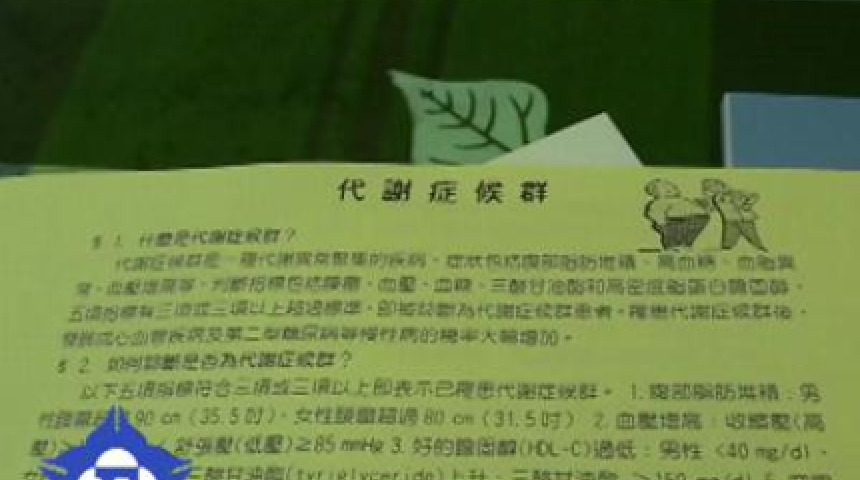 代謝症候群
§ 1. 什麼是代謝症候群？
代謝症候群是一種代謝異常聚集的疾病，症狀包括腹部脂肪堆積、高血糖、血脂異
常、血壓增高等，判斷指標包括腰圍、血壓、血糖、三酸甘油酯和高密度脂蛋白膽固醇，
五項指標有三項或三項以上超過標準，即被診斷為代謝症候群患者。罹患代謝症候群後，
發展成心血管疾病及第二型糖尿病等慢性病的機率大幅增加。
§ 2. 如何診斷是否為代謝症候群？
以下五項指標符合三項或三項以上即表示已罹患代謝症候群。 1. 腹部脂肪堆積：男
性腰圍 90 cm（35.5吋）、女性腰圍超過 80 cm（31.5吋） 2. 血壓增高：收縮壓(高
壓)≥ 舒張壓(低壓)≥85 mmHg 3. 好的膽固醇(HDL-C)過低：男性 <40 mg/dl、
三酸甘油酯(tyriglyceride)上升：三酸甘油酯 ≥150 mg/dl